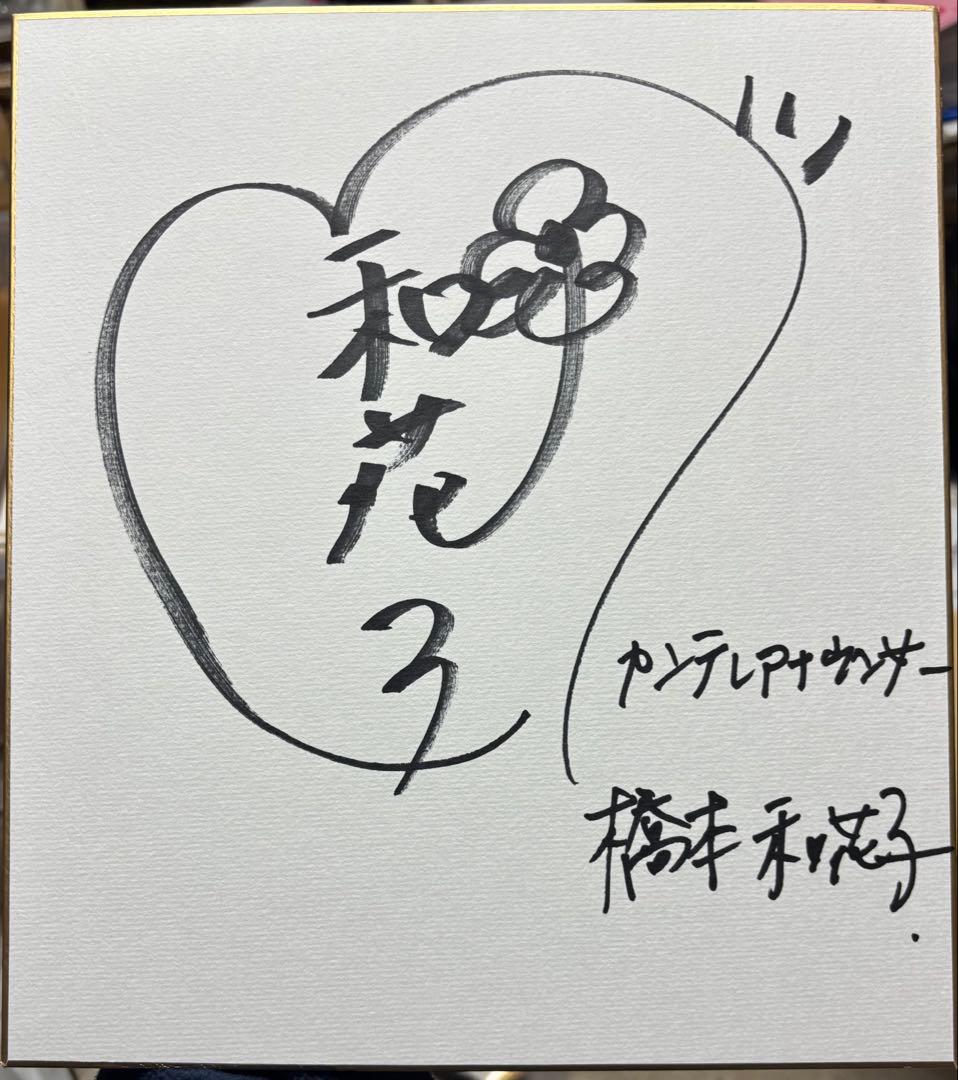 和花子
カンテレアナウンサー
橋本和花子